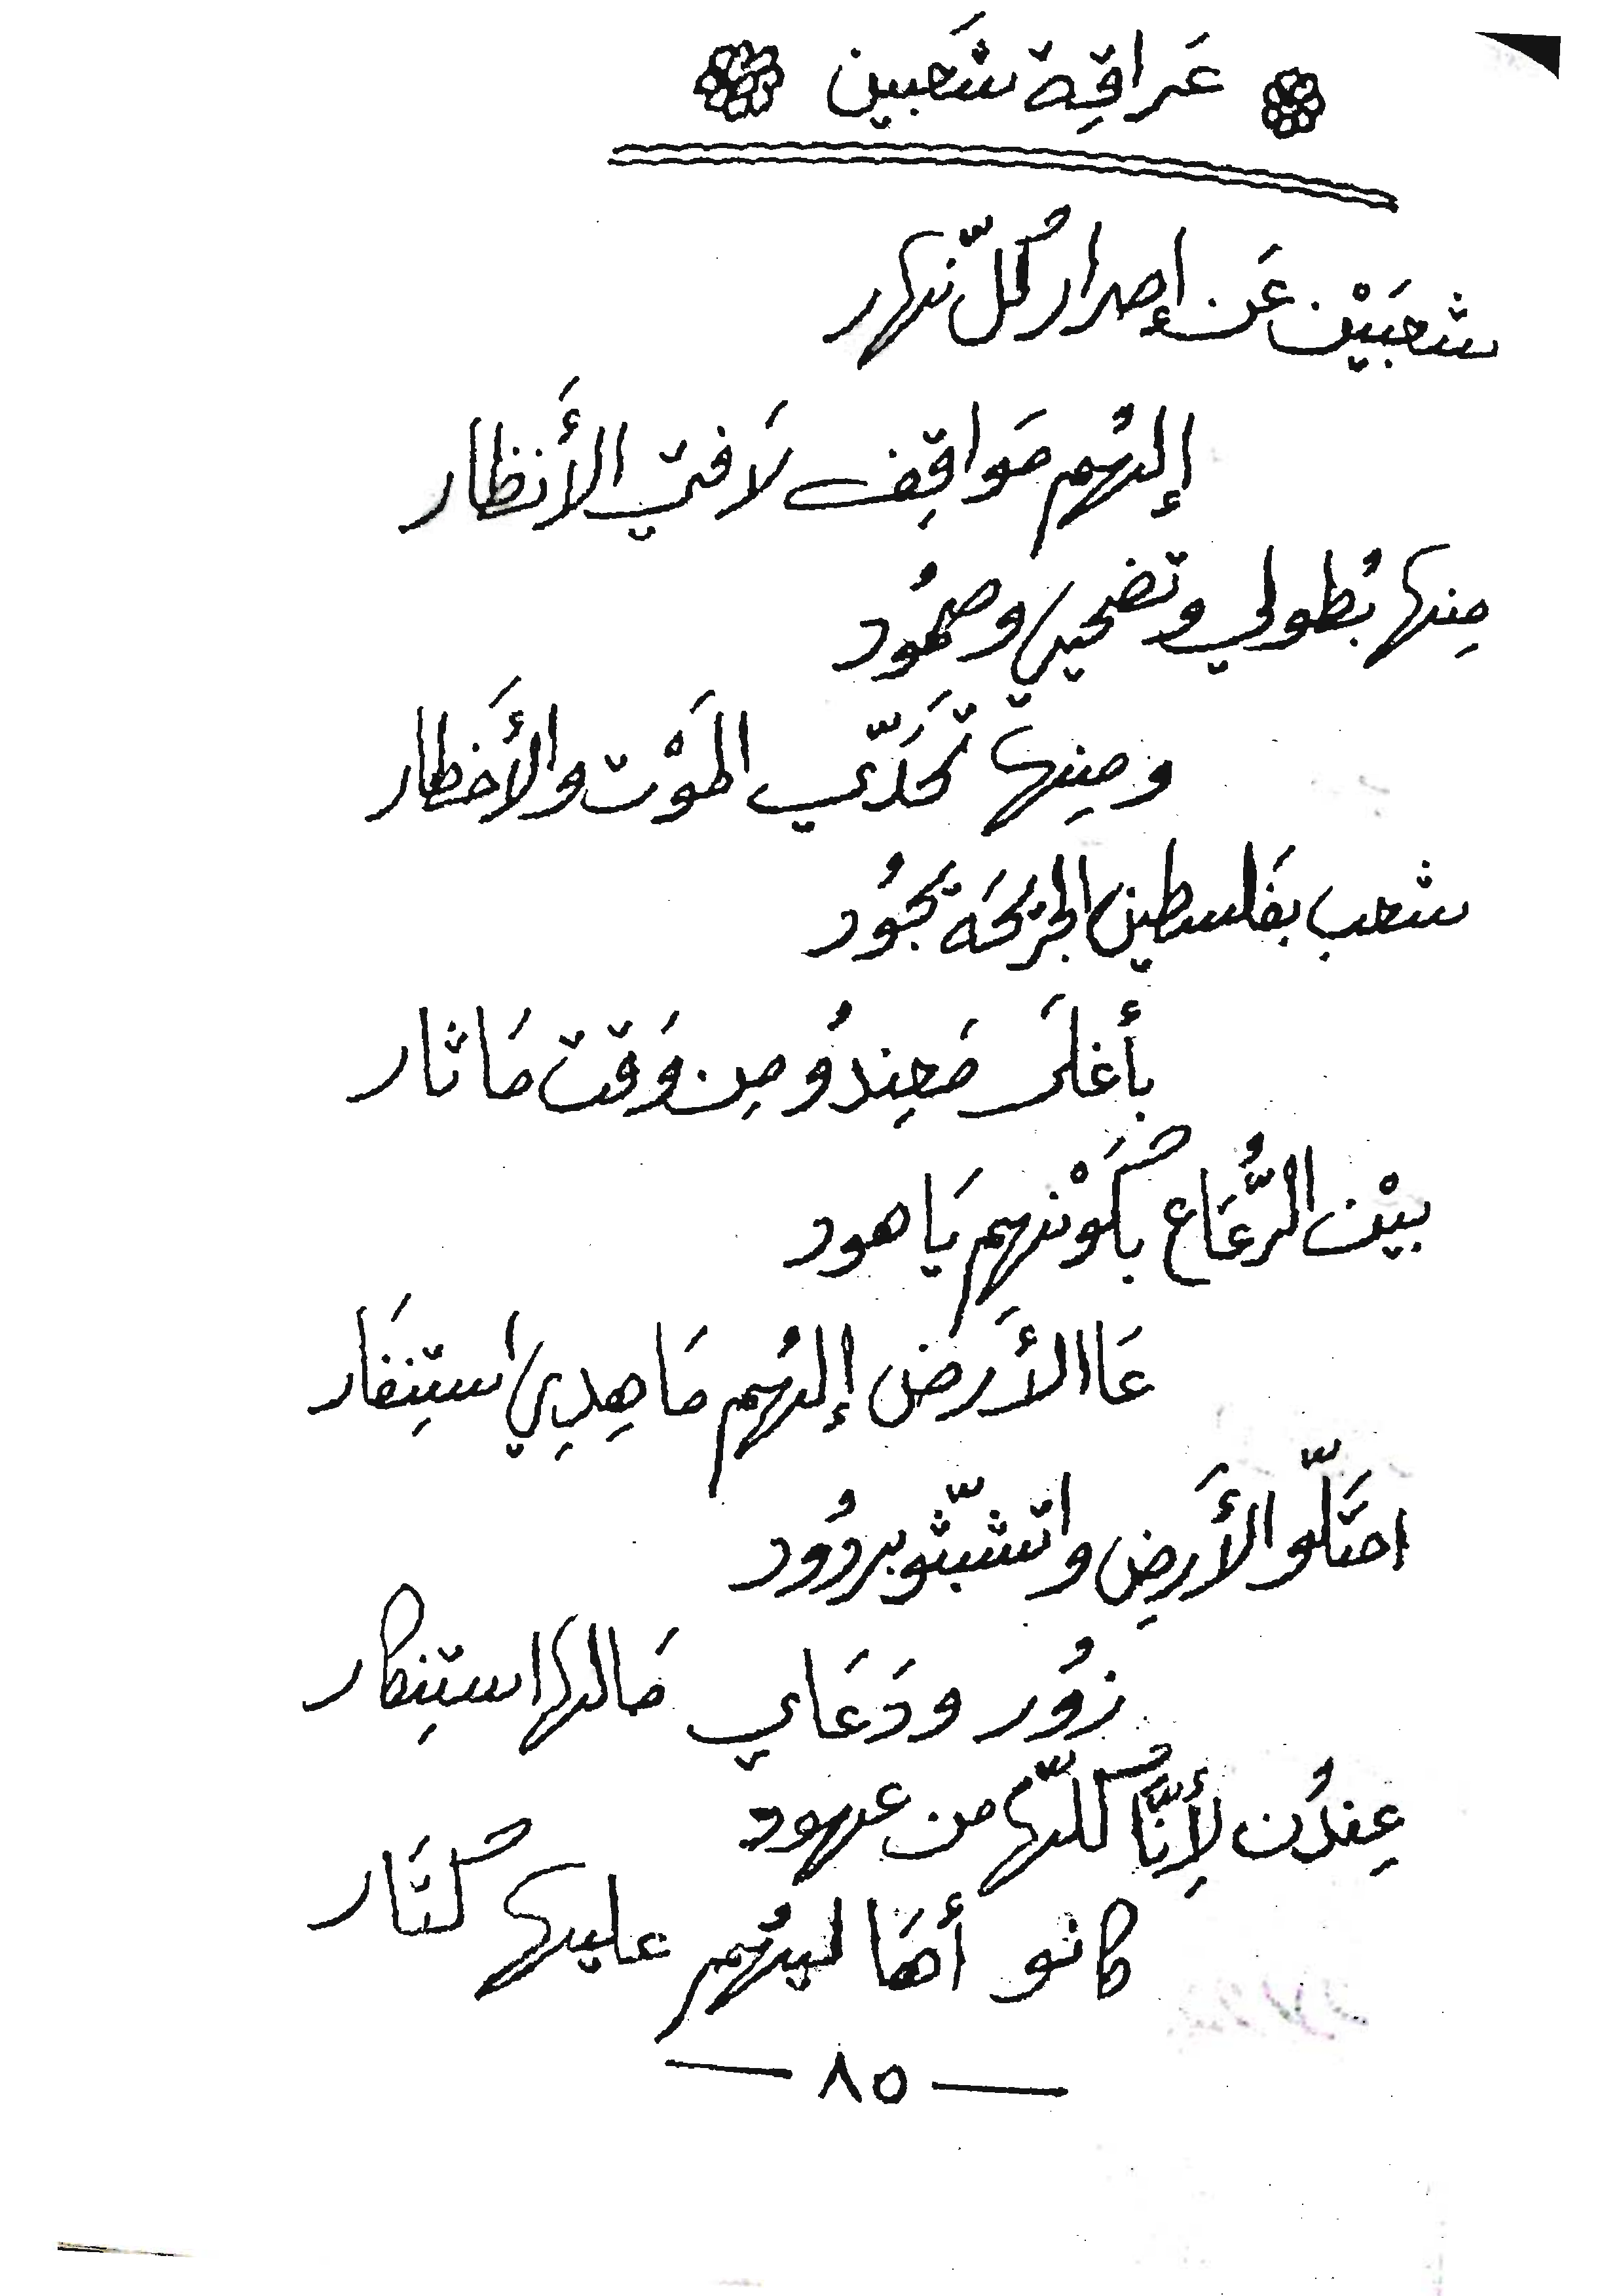 عَراقِة شَعبين
شعبَيْن عَن إصرار كُلّ نهار
إلهُم مَواقِف لَافتي الأَنظار
مِنها بُطولي وتضحيي وصمُود
ومِنها تحَدّي المَوْت والأَخطار
شعب بفَلسطين الجَرّيحَة بجُود
بأغلَى مَعِندُو مِن وَقت مَا ثار
بيْن الرُّعَاع بكَوْنهم يَاهود
عَا الأَرض إلهُم مَا هِدِي استِنفَار
احتَلّو الأَرض واتشبّثو بردُود
زُور ودَعَاي مَالها استِنكار
عِندُن لأَِنَّا كُلّها من عهود
كانو أهَاليهُم عليها كُتَار
— ٨٥ —